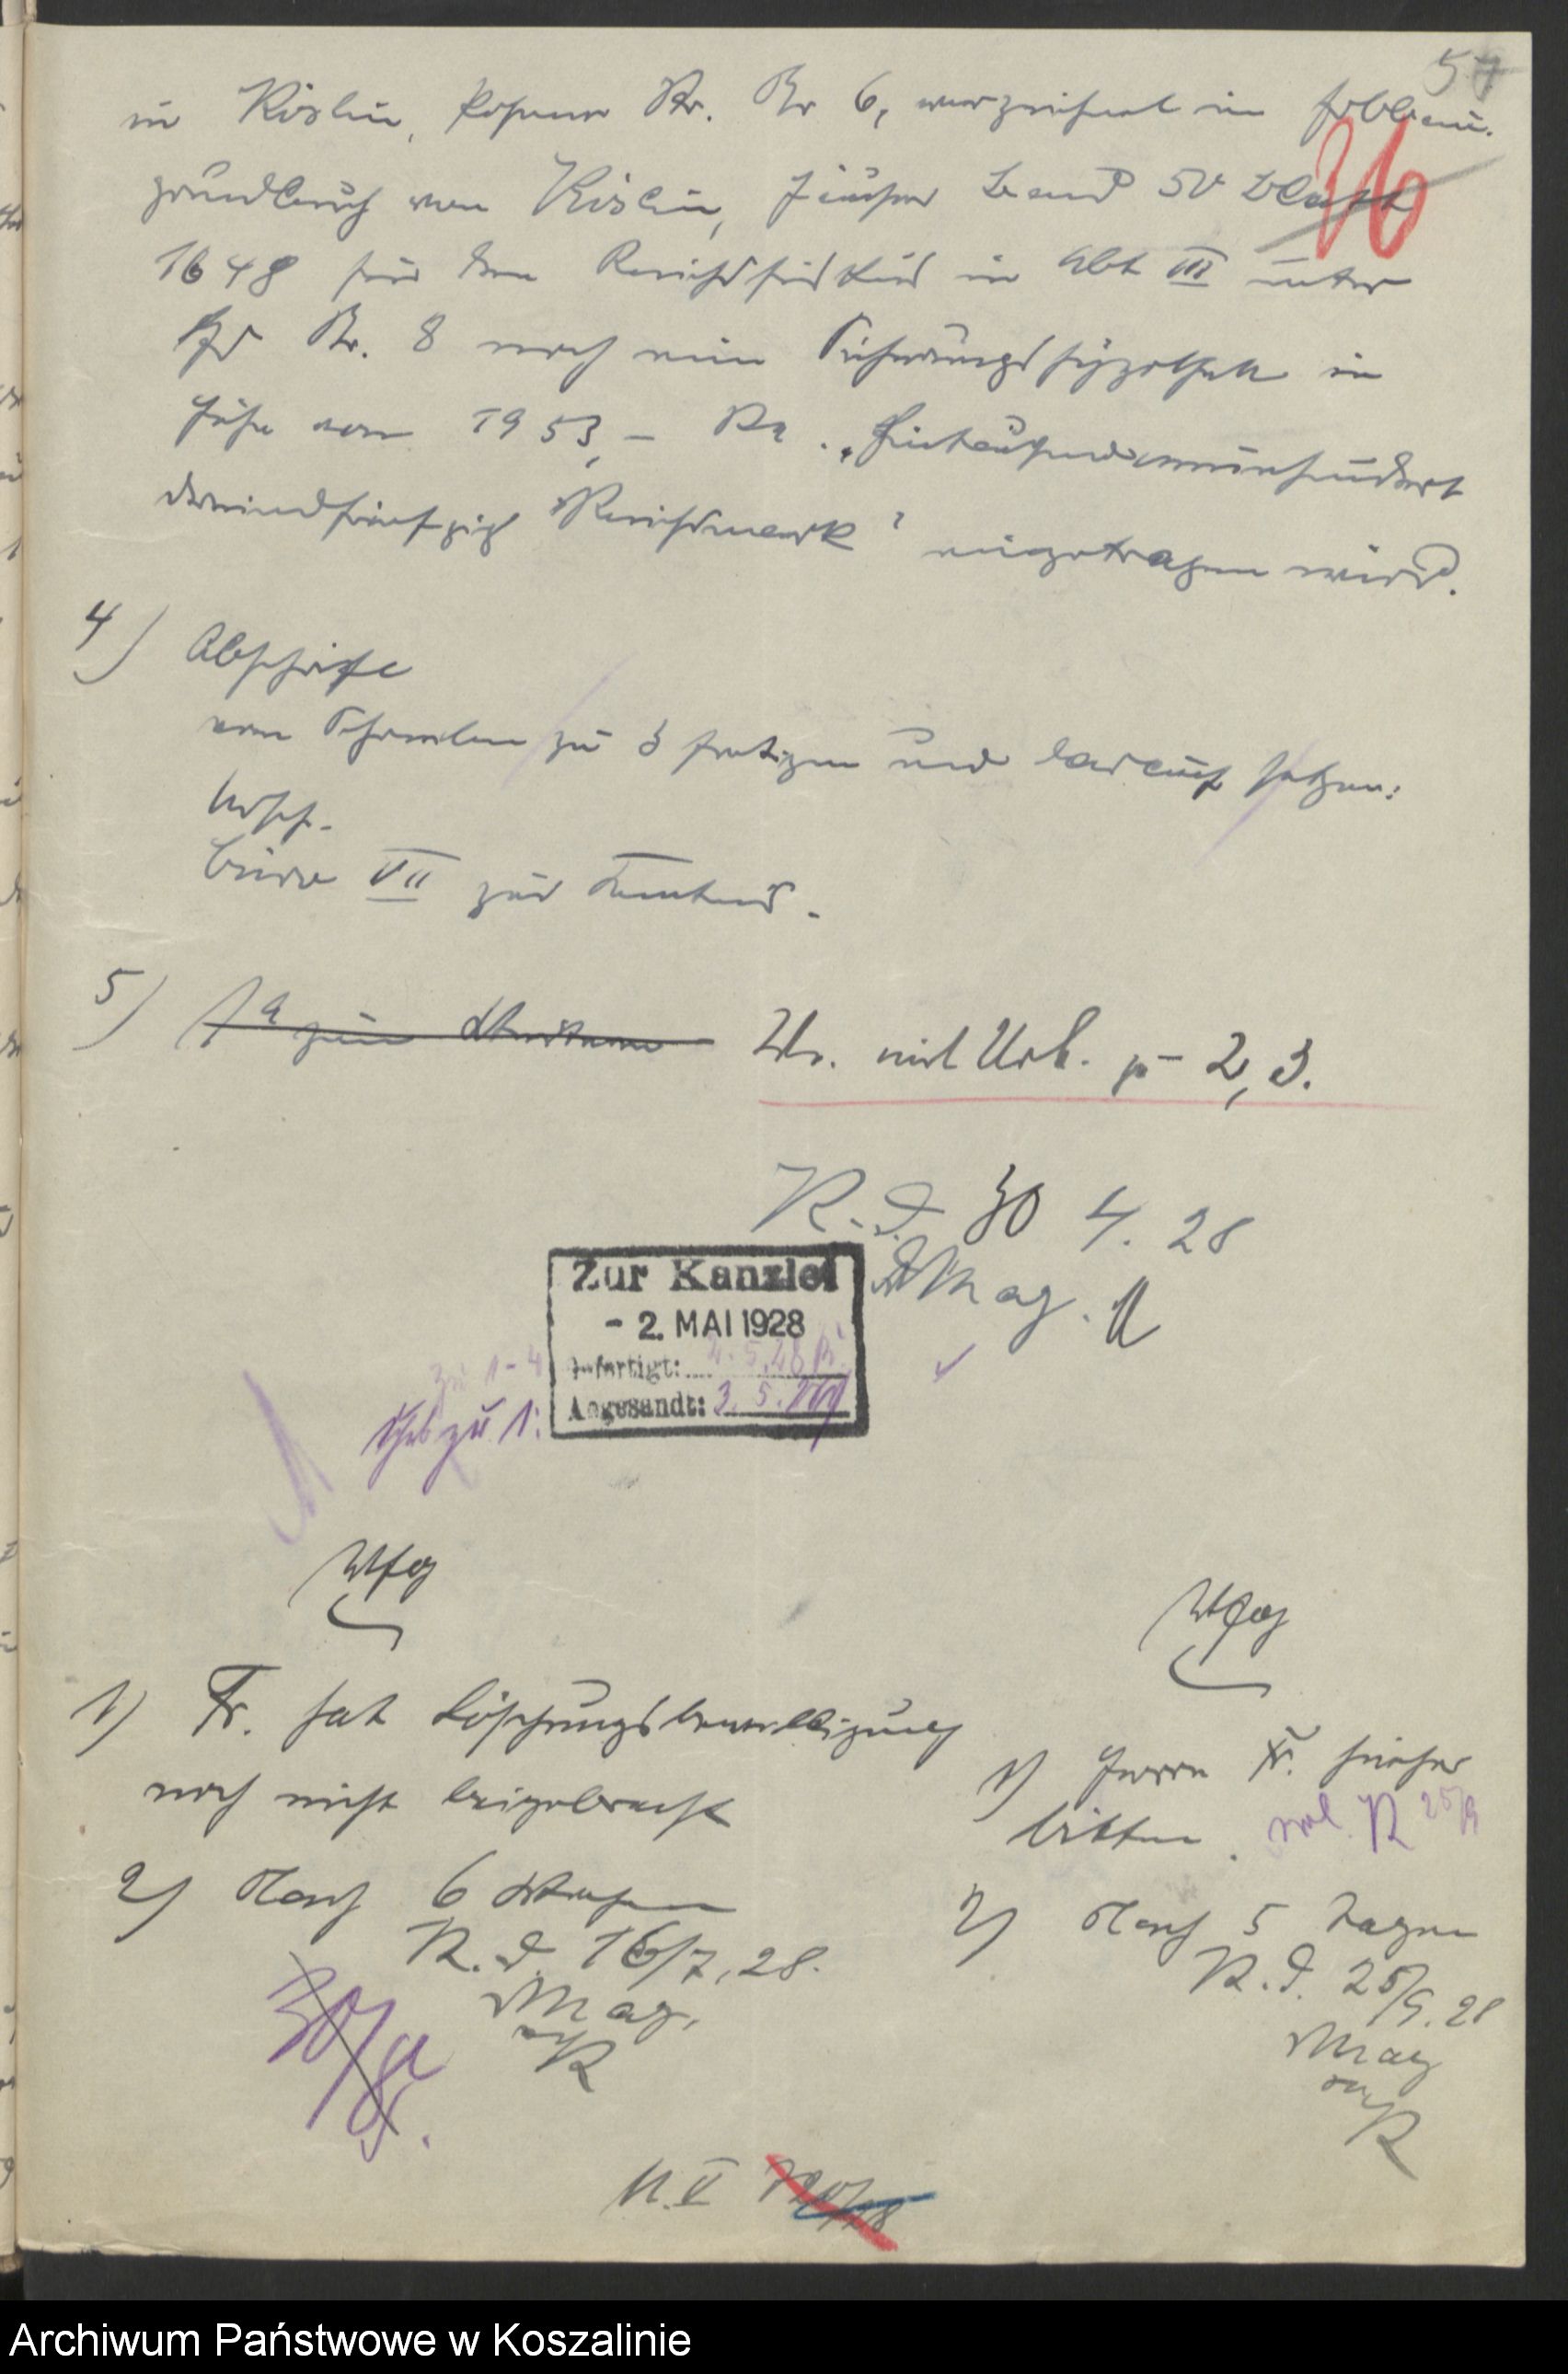 57
in Köslin, Posener Str. Nr 6, verzeichnet im Erbbau-
grundbuch von Köslin, Häuser Band 50 Blatt
16
1648 für den Reichsfiskus in Abt III unter
lfd Nr. 8 noch eine Sicherungshypothek in
Höhe von 1953,- RM. „Eintausendneunhundert
dreiundfünfzig Reichsmark" eingetragen wird.
4) Abschrift
vom Schreiben zu 3 fertigen und darauf setzen:
Urschr.
Büro VII zur Kenntnis.
5) zum
Wv. mit Urk. zu 2, 3.
K. d. 30 4. 28
D Mag.
Zur Kanzlei
- 2. MAI 1928
zu 1-4 Gefertigt:
zu 1: Abgesandt: 3. 5.
Vfg
1) Fr. hat Löschungsbewilligung
noch nicht beigebracht
2) Nach 6 Wochen
K. d. 16/7. 28.
D Mag.
Vfg
1) Herrn Fr. hierher
bitten.
25/9
2) Nach 5 Tagen
K. d. 25/9. 28
D Mag
30/8.
Archiwum Państwowe w Koszalinie